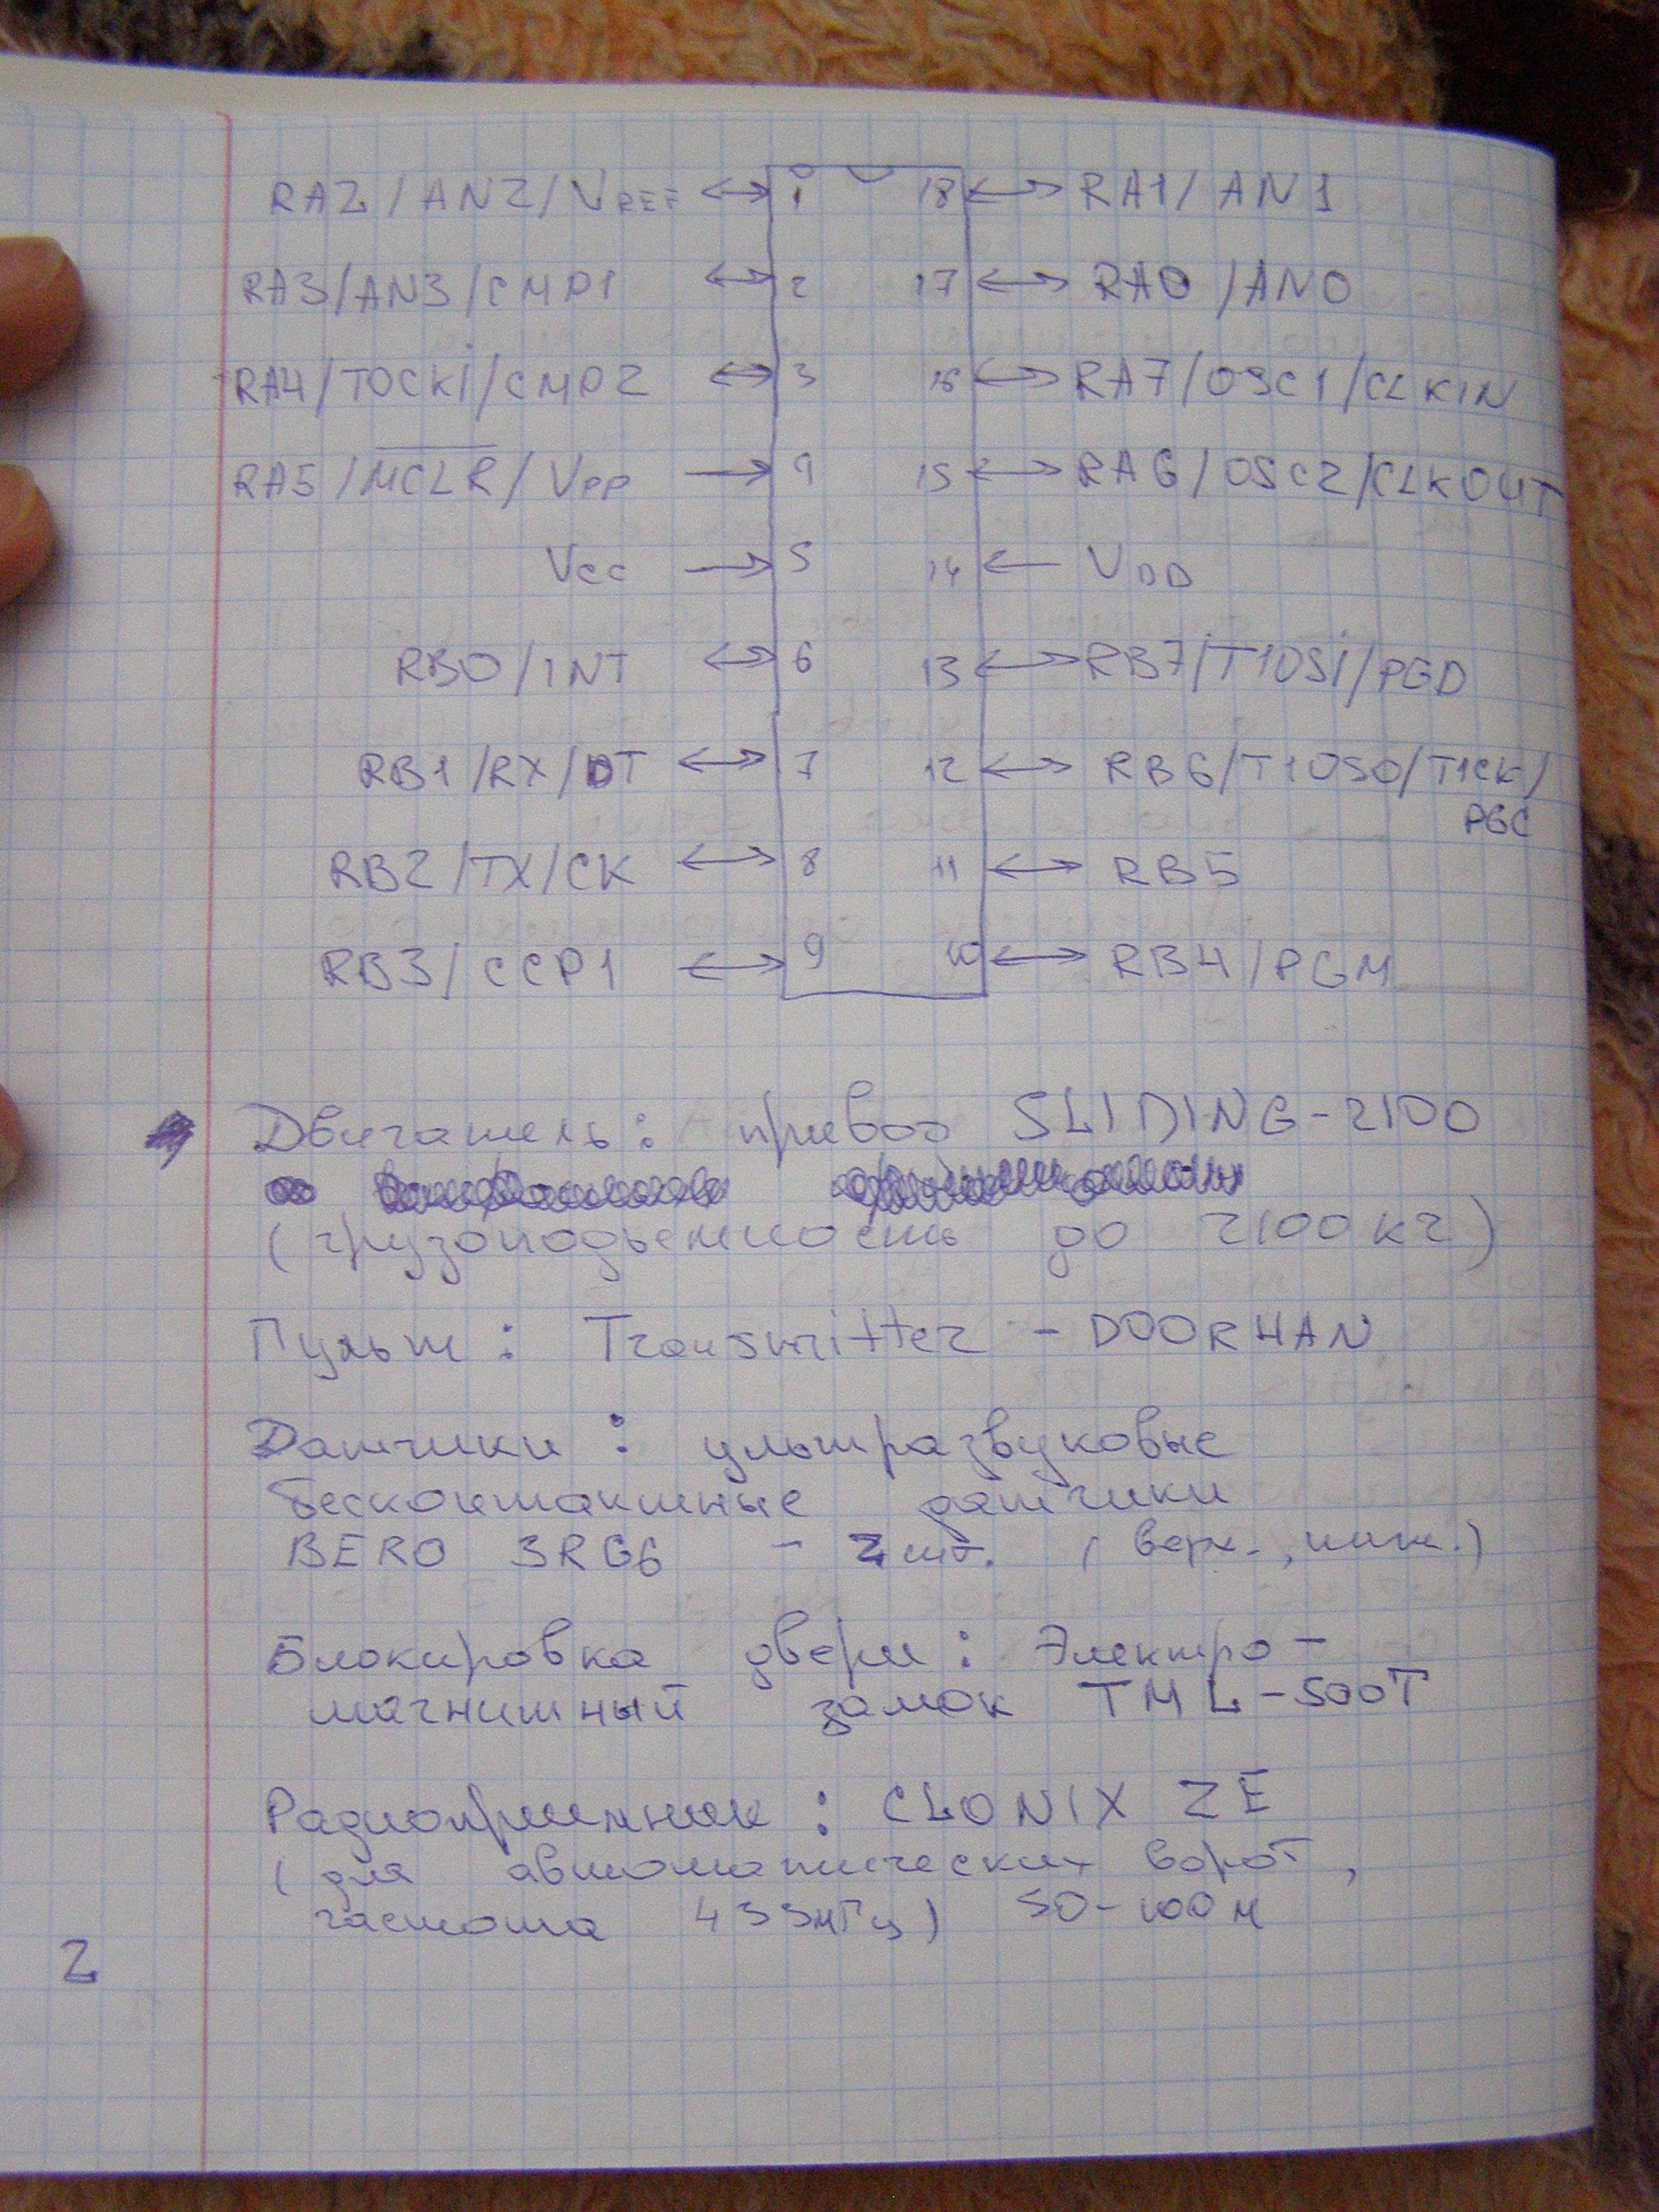 RA2/AN2/VREF ↔ 1 18 ↔ RA1/AN1
RA3/AN3/CMP1 ↔ 2 17 ↔ RA0/AN0
RA4/TOCKi/CMP2 ↔ 3 16 ↔ RA7/OSC1/CLKIN
RA5/MCLR/VPP → 4 15 ↔ RA6/OSC2/CLKOUT
Vcc → 5 14 ← VDD
RB0/INT ↔ 6 13 ↔ RB7/T1OSi/PGD
RB1/RX/DT ↔ 7 12 ↔ RB6/T1OSO/T1CK/
PGC
RB2/TX/CK ↔ 8 11 ↔ RB5
RB3/CCP1 ↔ 9 10 ↔ RB4/PGM
Двигатель: привод SLIDING-2100
(грузоподъемность до 2100 кг)
Пульт: Transmitter - DOORHAN
Датчики: ультразвуковые
бесконтактные датчики
BERO 3RG6 - 2 шт. (верх., ниж.)
Блокировка двери: Электро-
магнитный замок TML-500T
Радиоприемник: CLONIX 2E
(для автоматических ворот,
частота 433мГц) 50-100 м
2